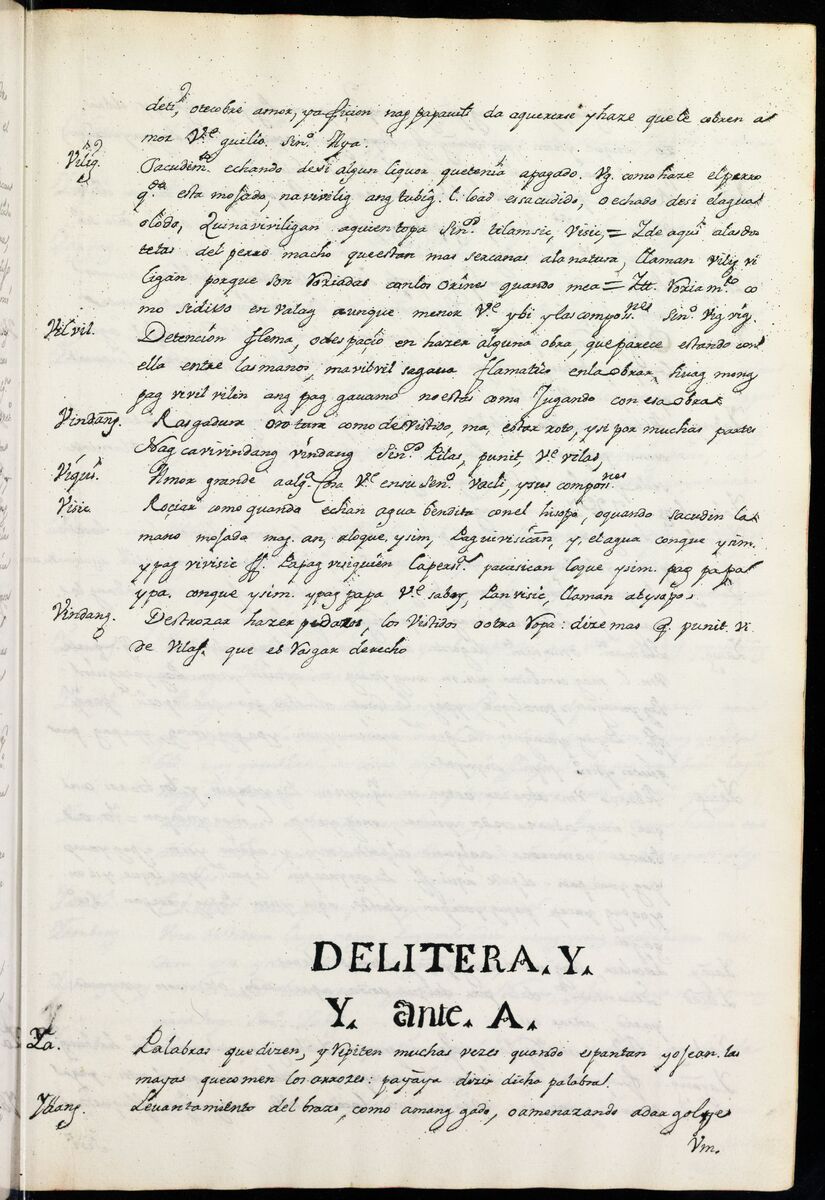 deti, otecobre amor, yaficion nag papauili da aquererse y haze quete cobren a
mor Vᵉ guilio. Sinº Aya.
Vilig. Sacudimᵗº echando desi algun liquor quetenia apagado. Vg. como haze el perro
qᵈº esta mojado, na vivilig ang tubig. l. load es sacudido, o echado desi el agua
olodo, aquientopa Sinº tilamsic, Visic, = Zde aqui alas dos
tetas del perro macho que estan mas sercanas ala natura, llaman Vilig vi
ligan porque son Voriadas con los orines quando mea = Itt. Voria mᵗº co
mo sedivio en Valag aunque menor Vᵉ ybi y las composiⁿᵉˢ Sinº Vig vig.
Vil vil. Detencion flema, o despacio en hazer alguna obra, que parece estando con
ella entre las manos, mavilvil sagaua flamatico en la obrar, huag mong
pag vivil vilin ang pag gauamo no estes como Jugando con esa obra
Vindang. Rasgadura o rotura como de Vistido, ma, estar roto, y si por muchas partes
Nag cavivindang vindang Sinº Pilas, punit, Vᵉ vilas,
Viguis. Amor grande a algª cosa Vᵉ en su Sinº Vacli, y sus composⁿᵉˢ
Visic. Rociar como quando echan agua bendita con el hisopo, o quando sacuden la
mano mojada mag. an, aloque, ysim, Paguivisican, y, el agua conque ysim.
ypag vivisic ff. Papag visiquin la persª. pavisican loque ysim. pag papa
ypa. conque ysim. ypag papa Vᵉ saboy, Panvisic, llaman
Vindang. Destrozar hazer pedazos, los Vestidos o otra Ropa: dize mas q. punit. vi
de Vilas. que es Rasgar derecho
DELITERA. Y.
Y. ante. A.
Ya. Palabras que dizen, y Repiten muchas vezes quando espantan y ojean las
mayas que comen los arrozes: payaya dezir dicha palabra.
Yaang. Levantamiento del brazo, como amang gado, o amenazando a dar golpe
Vm.